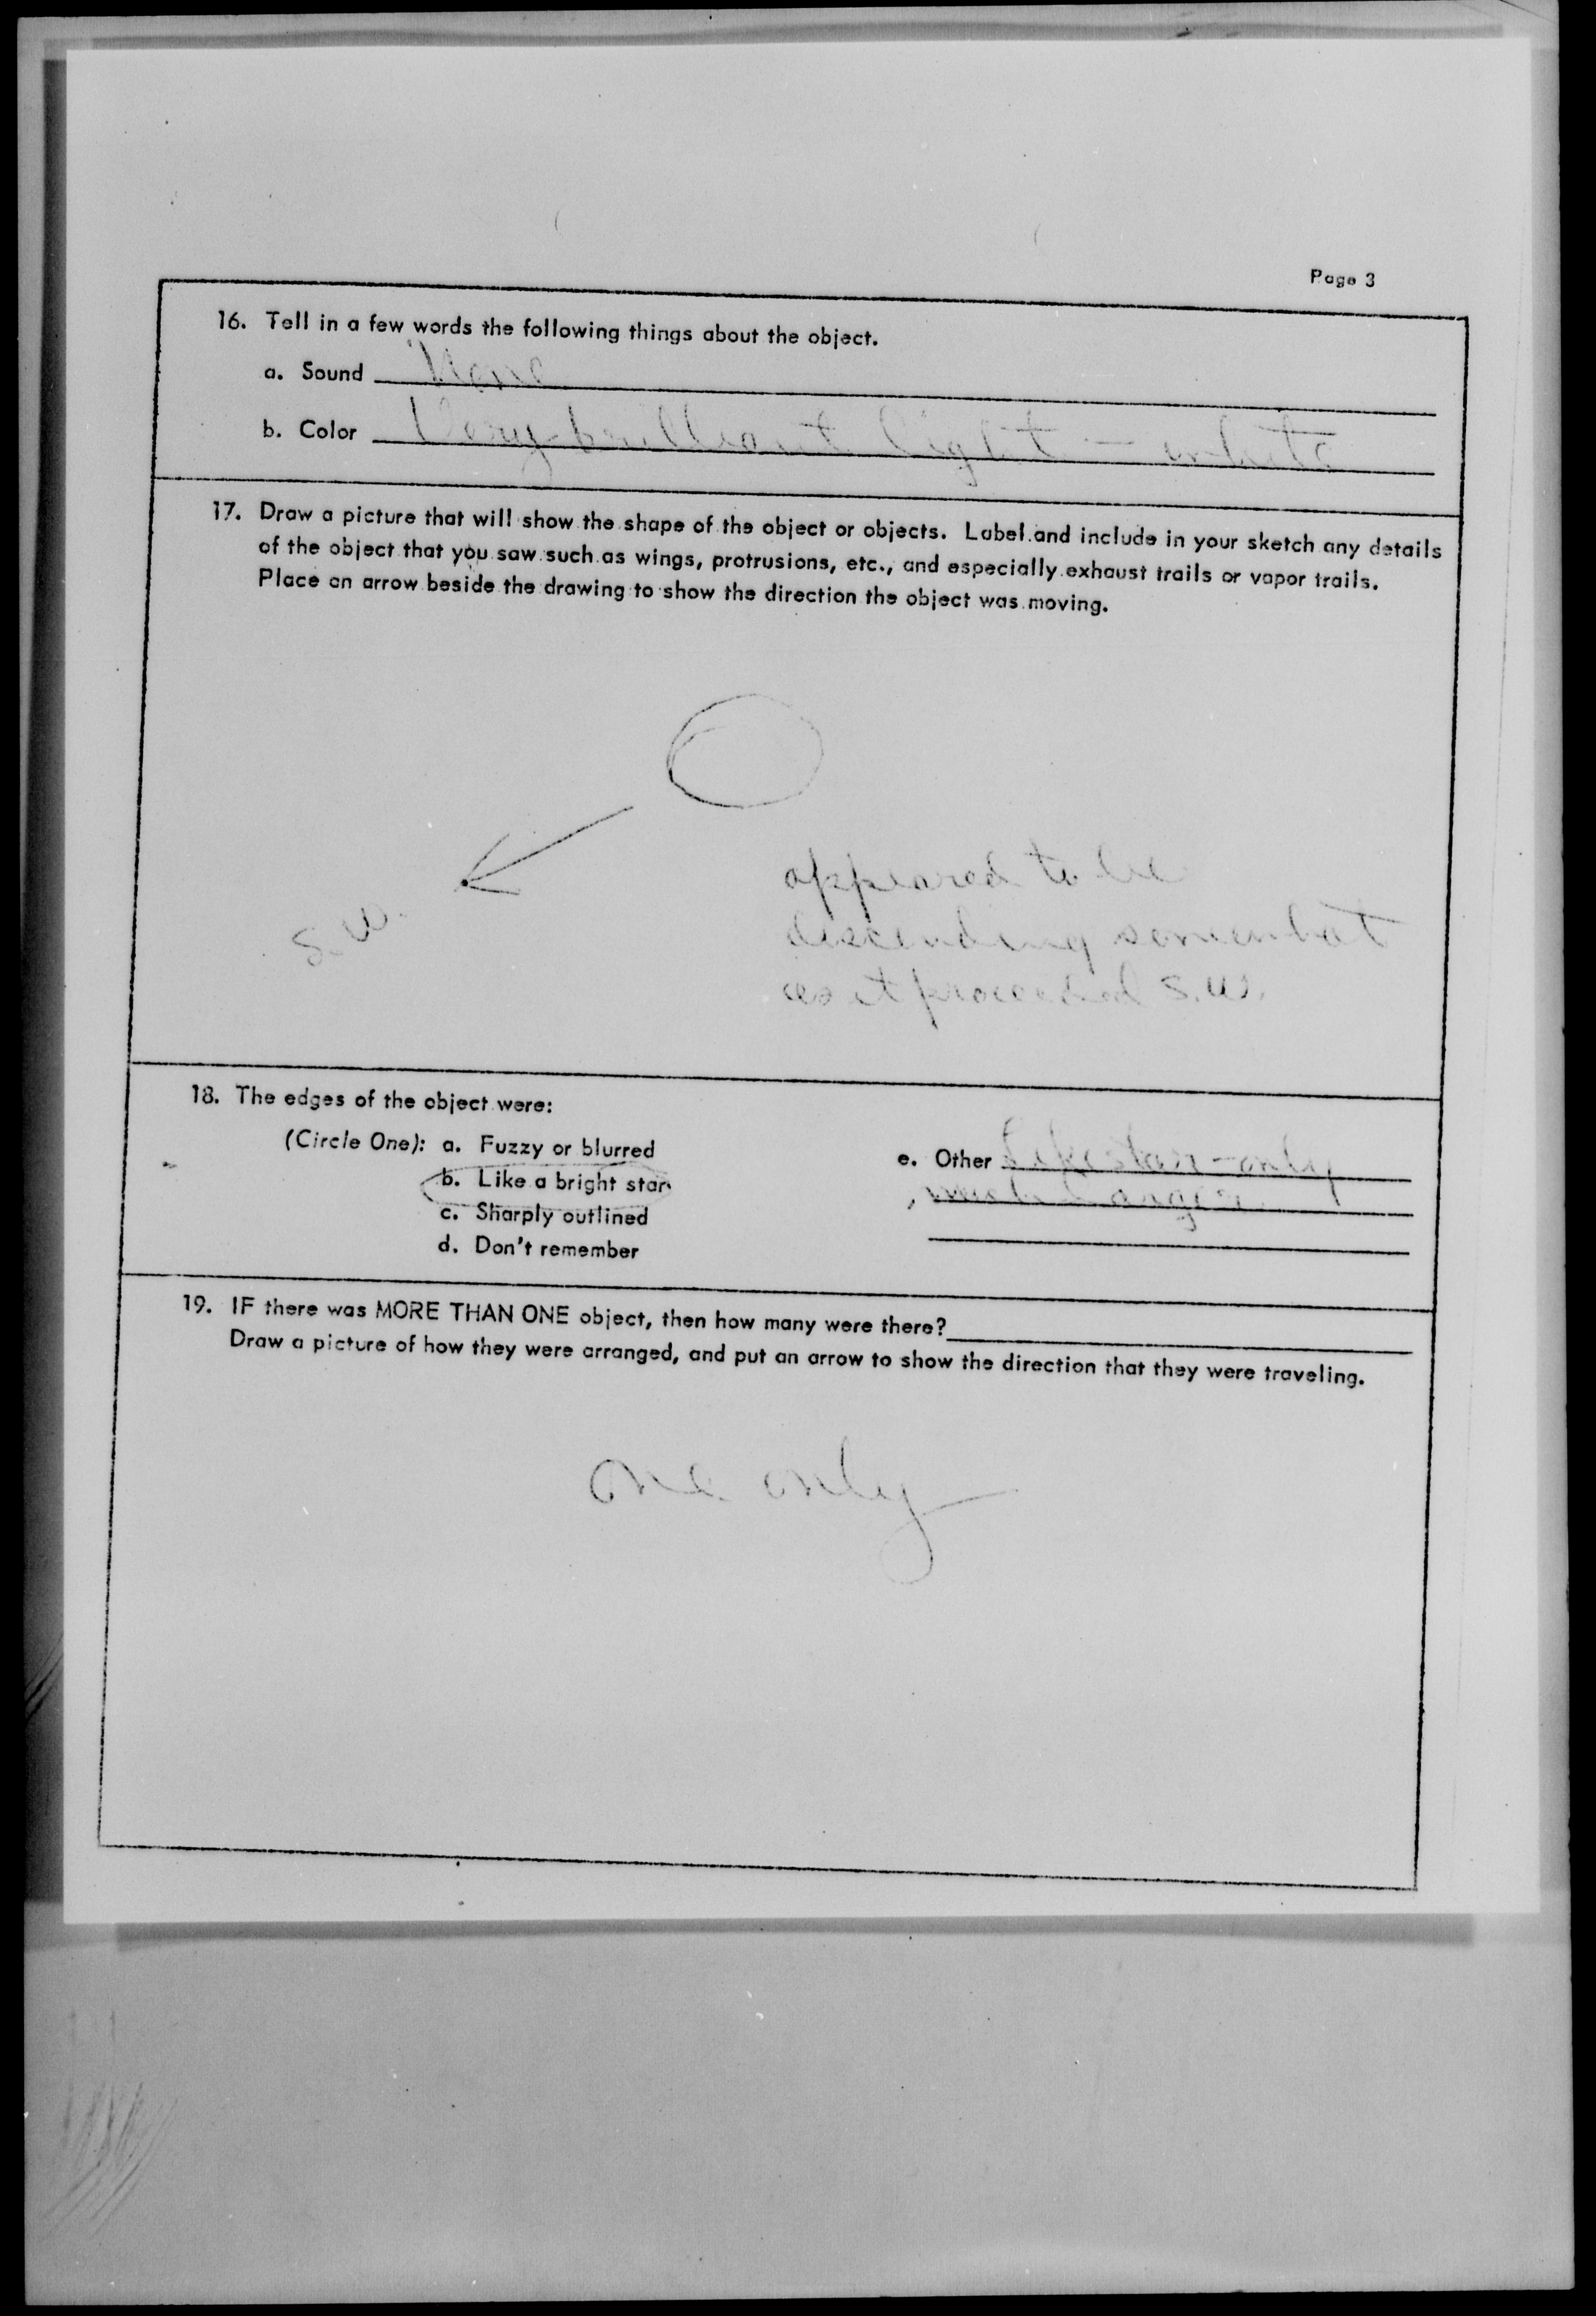 Page 3
16. Tell in a few words the following things about the object.
a. Sound None
b. Color Very brilliant light — white
17. Draw a picture that will show the shape of the object or objects. Label and include in your sketch any details
of the object that you saw such as wings, protrusions, etc., and especially exhaust trails or vapor trails.
Place an arrow beside the drawing to show the direction the object was moving.
S.W.
appeared to be
descending somewhat
as it proceeded S.W.
18. The edges of the object were:
(Circle One): a. Fuzzy or blurred
b. Like a bright star
c. Sharply outlined
d. Don't remember
e. Other Like star - only
much larger
19. IF there was MORE THAN ONE object, then how many were there?
Draw a picture of how they were arranged, and put an arrow to show the direction that they were traveling.
One only